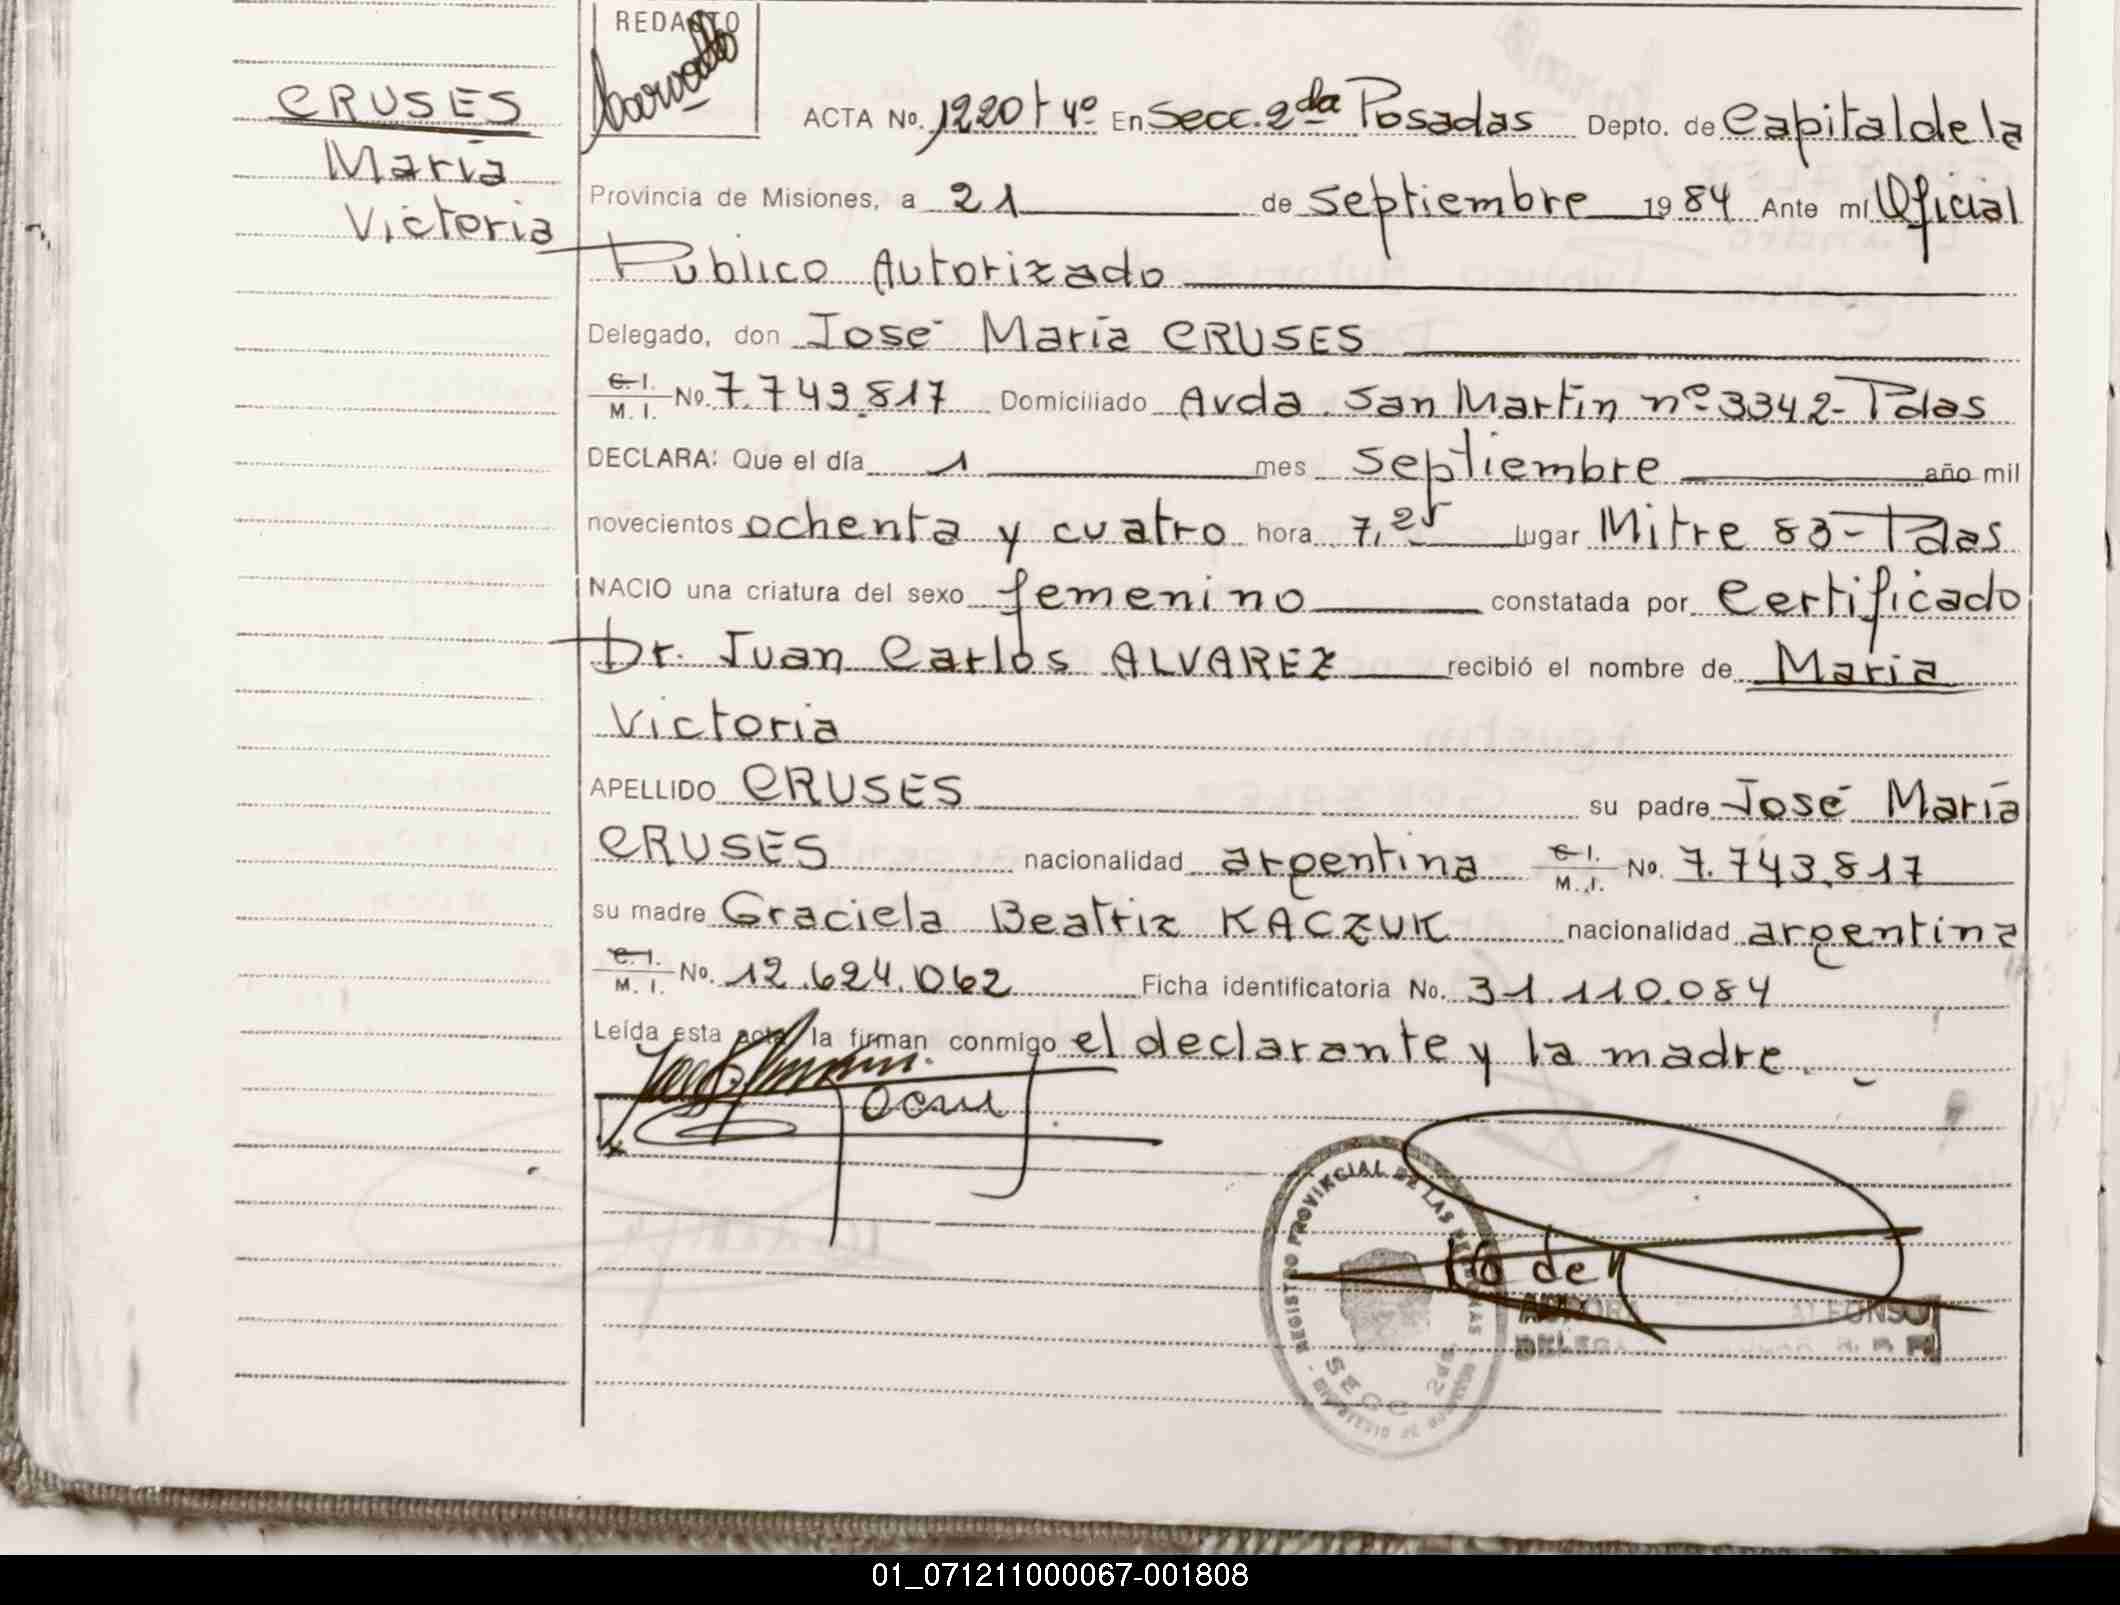 REDACTO
CRUSES
María
Victoria
ACTA No. 1220 t 4º En Secc. 2da Posadas Depto. de Capital de la
Provincia de Misiones, a 21 de septiembre 1984 Ante mí Oficial
Público Autorizado
Delegado, don José María CRUSES
C. I. / M. I. No. 7.743.817 Domiciliado Avda. San Martín nº 3342-Pdas
DECLARA: Que el día 1 mes septiembre año mil
novecientos ochenta y cuatro hora 7,25 lugar Mitre 83-Pdas
NACIO una criatura del sexo femenino constatada por Certificado
Dr. Juan Carlos ALVAREZ recibió el nombre de María
Victoria
APELLIDO CRUSES su padre José María
CRUSES nacionalidad argentina C. I. / M. I. No. 7.743.817
su madre Graciela Beatriz KACZUK nacionalidad argentina
C. I. / M. I. No. 12.624.062 Ficha identificatoria No. 31.110.084
Leída esta acta, la firman conmigo el declarante y la madre.
REGISTRO PROVINCIAL DE LAS PERSONAS
SECC 2da
01_071211000067-001808